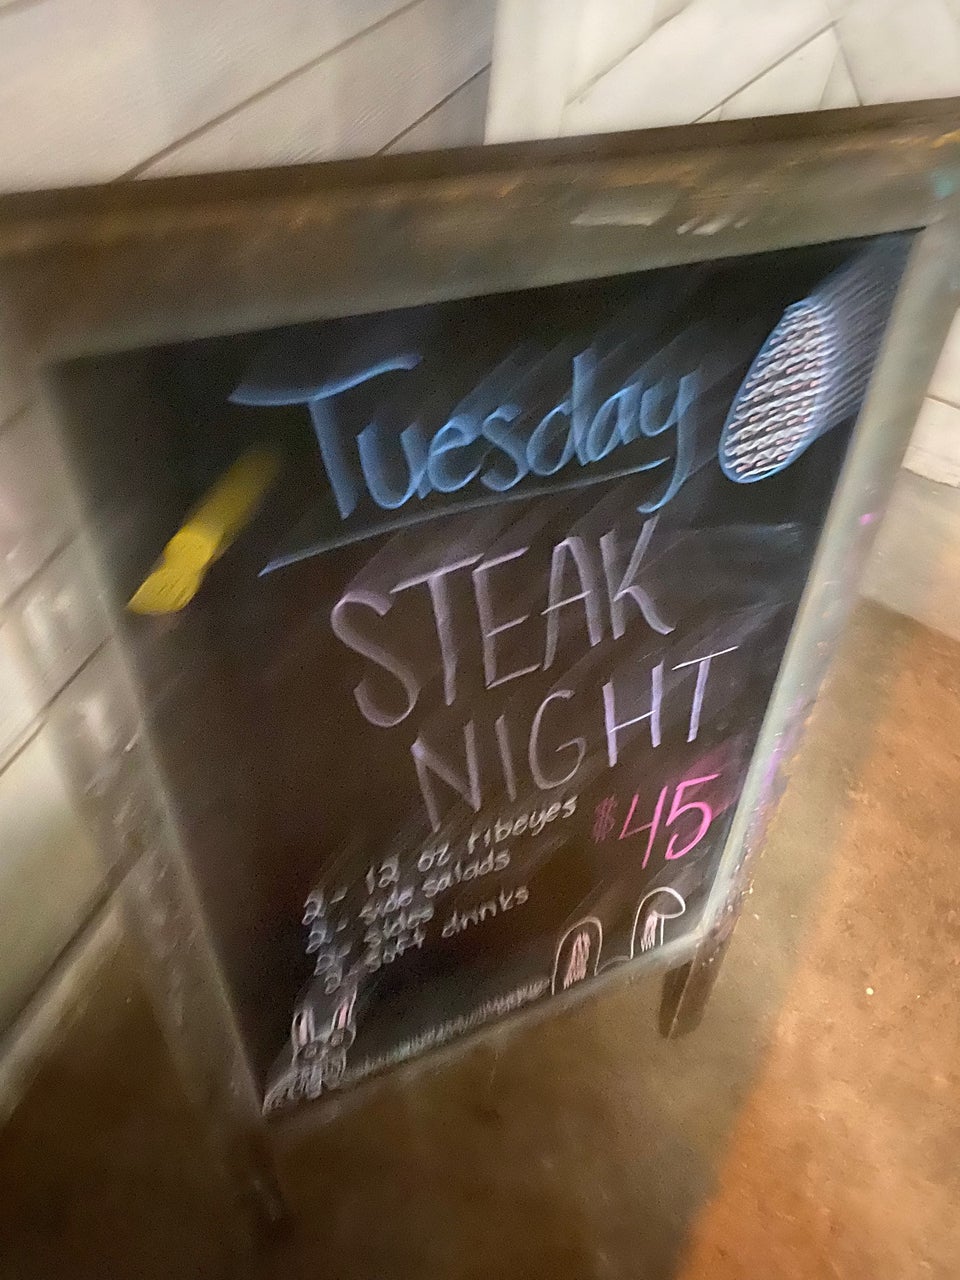 Tuesday
STEAK
NIGHT
$45
2 - 12 oz ribeyes
2 - side salads
2 - sides
2 - soft drinks